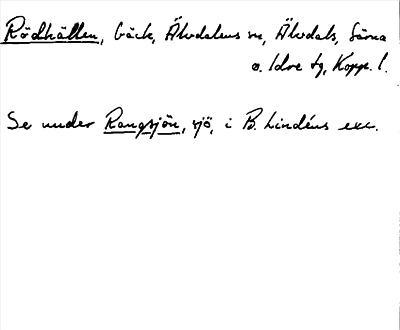 Rödhällen, bäck, Älvdalens sn, Älvdals, Särna
o. Idre tg, Kopp. l.
Se under Rangsjön, sjö, i B. Lindéns exc.